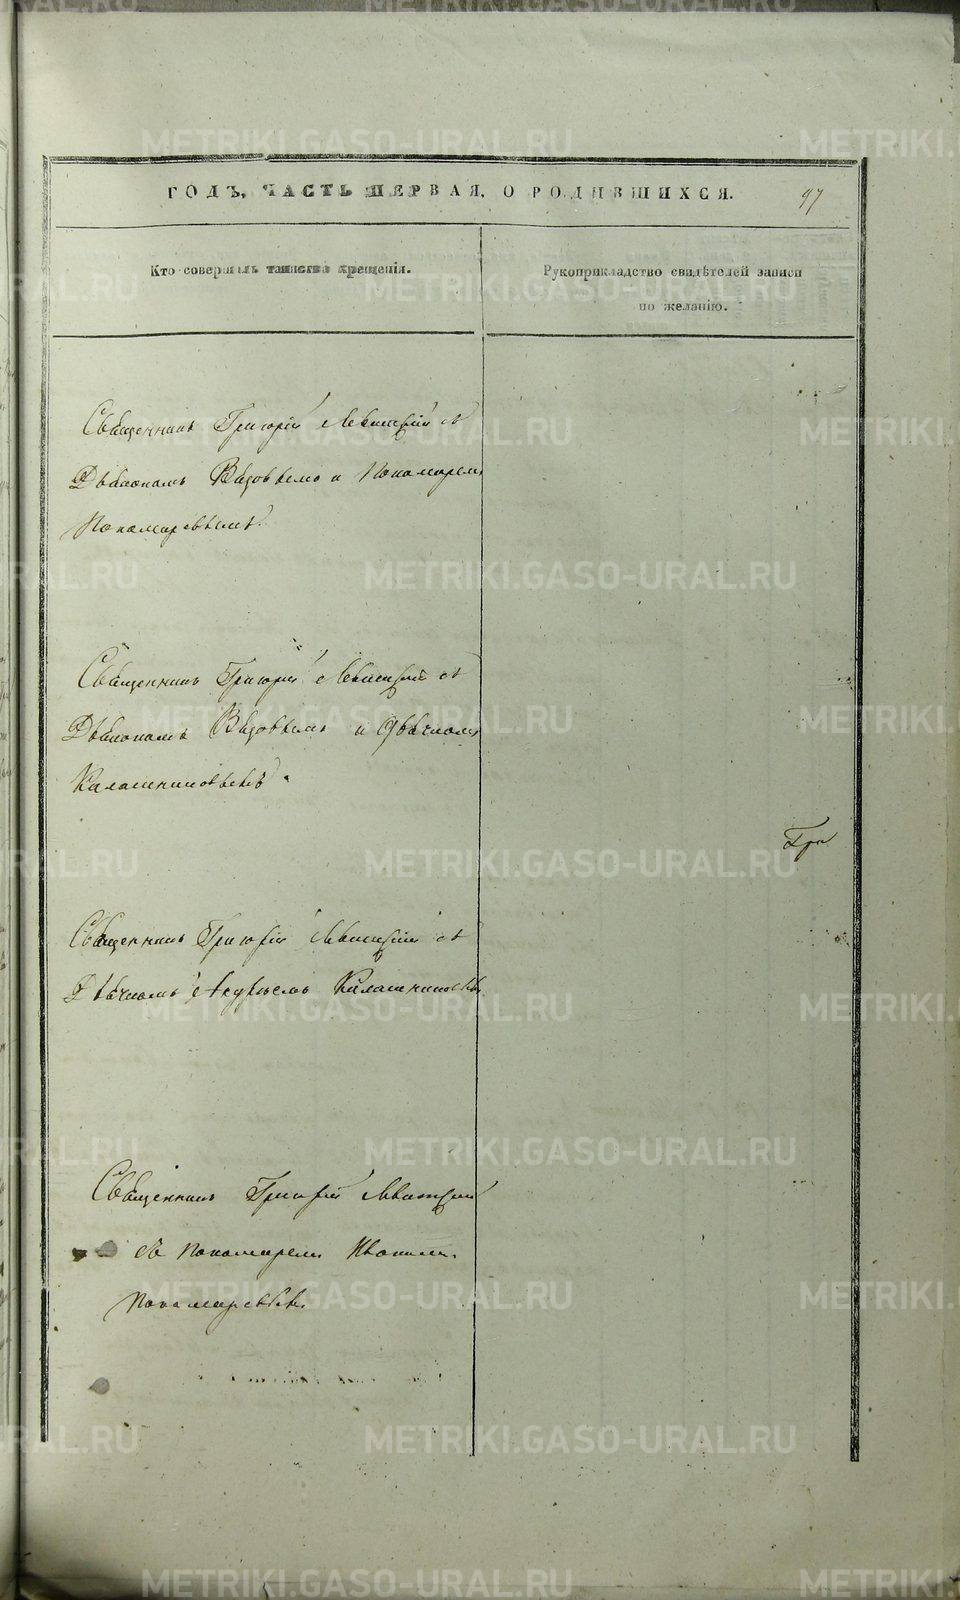 ГОДЪ, ЧАСТЬ ПЕРВАЯ, О РОДИВШИХСЯ.
97
Кто совершалъ таинство крещенія.
Рукоприкладство свидѣтелей записи
по желанію.
Священникъ Григорій Левитскій съ
Діакономъ и Пономаремъ
Пономаревымъ.
Священникъ Григорій Левитскій съ
Діакономъ и Дьячкомъ
Калашниковымъ.
Гри
Священникъ Григорій Левитскій съ
Дьячкомъ Андреемъ Калашниковымъ
Священникъ Григорій Левитскій
съ Пономаремъ Иваномъ
Пономаревымъ
METRIKI.GASO-URAL.RU